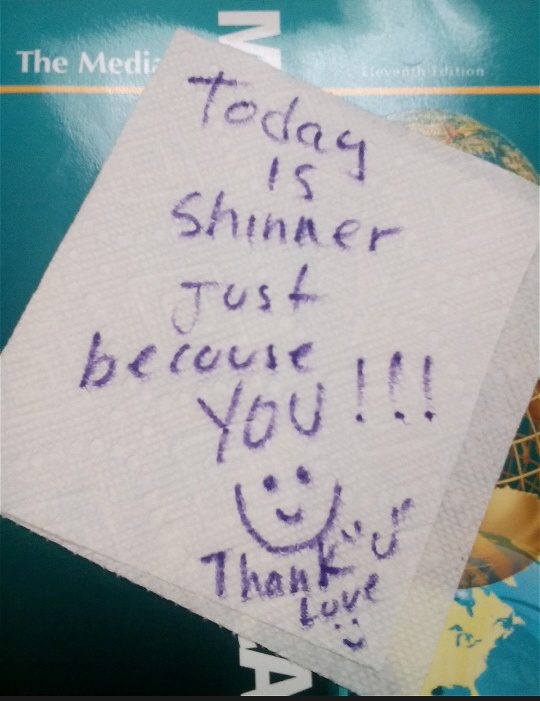 The Media
M
Eleventh Edition
Today
is
Shinner
Just
becouse
YOU !!!
Thank U
Love
A